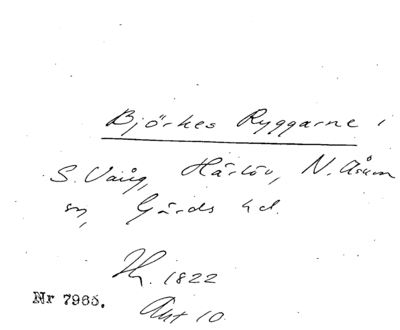 Björkes Ryggarne i
S. Vång, Härlöv, N. Åsum
sn, Gärds hd.
Hy. 1822
Akt 10
Nr 7965.